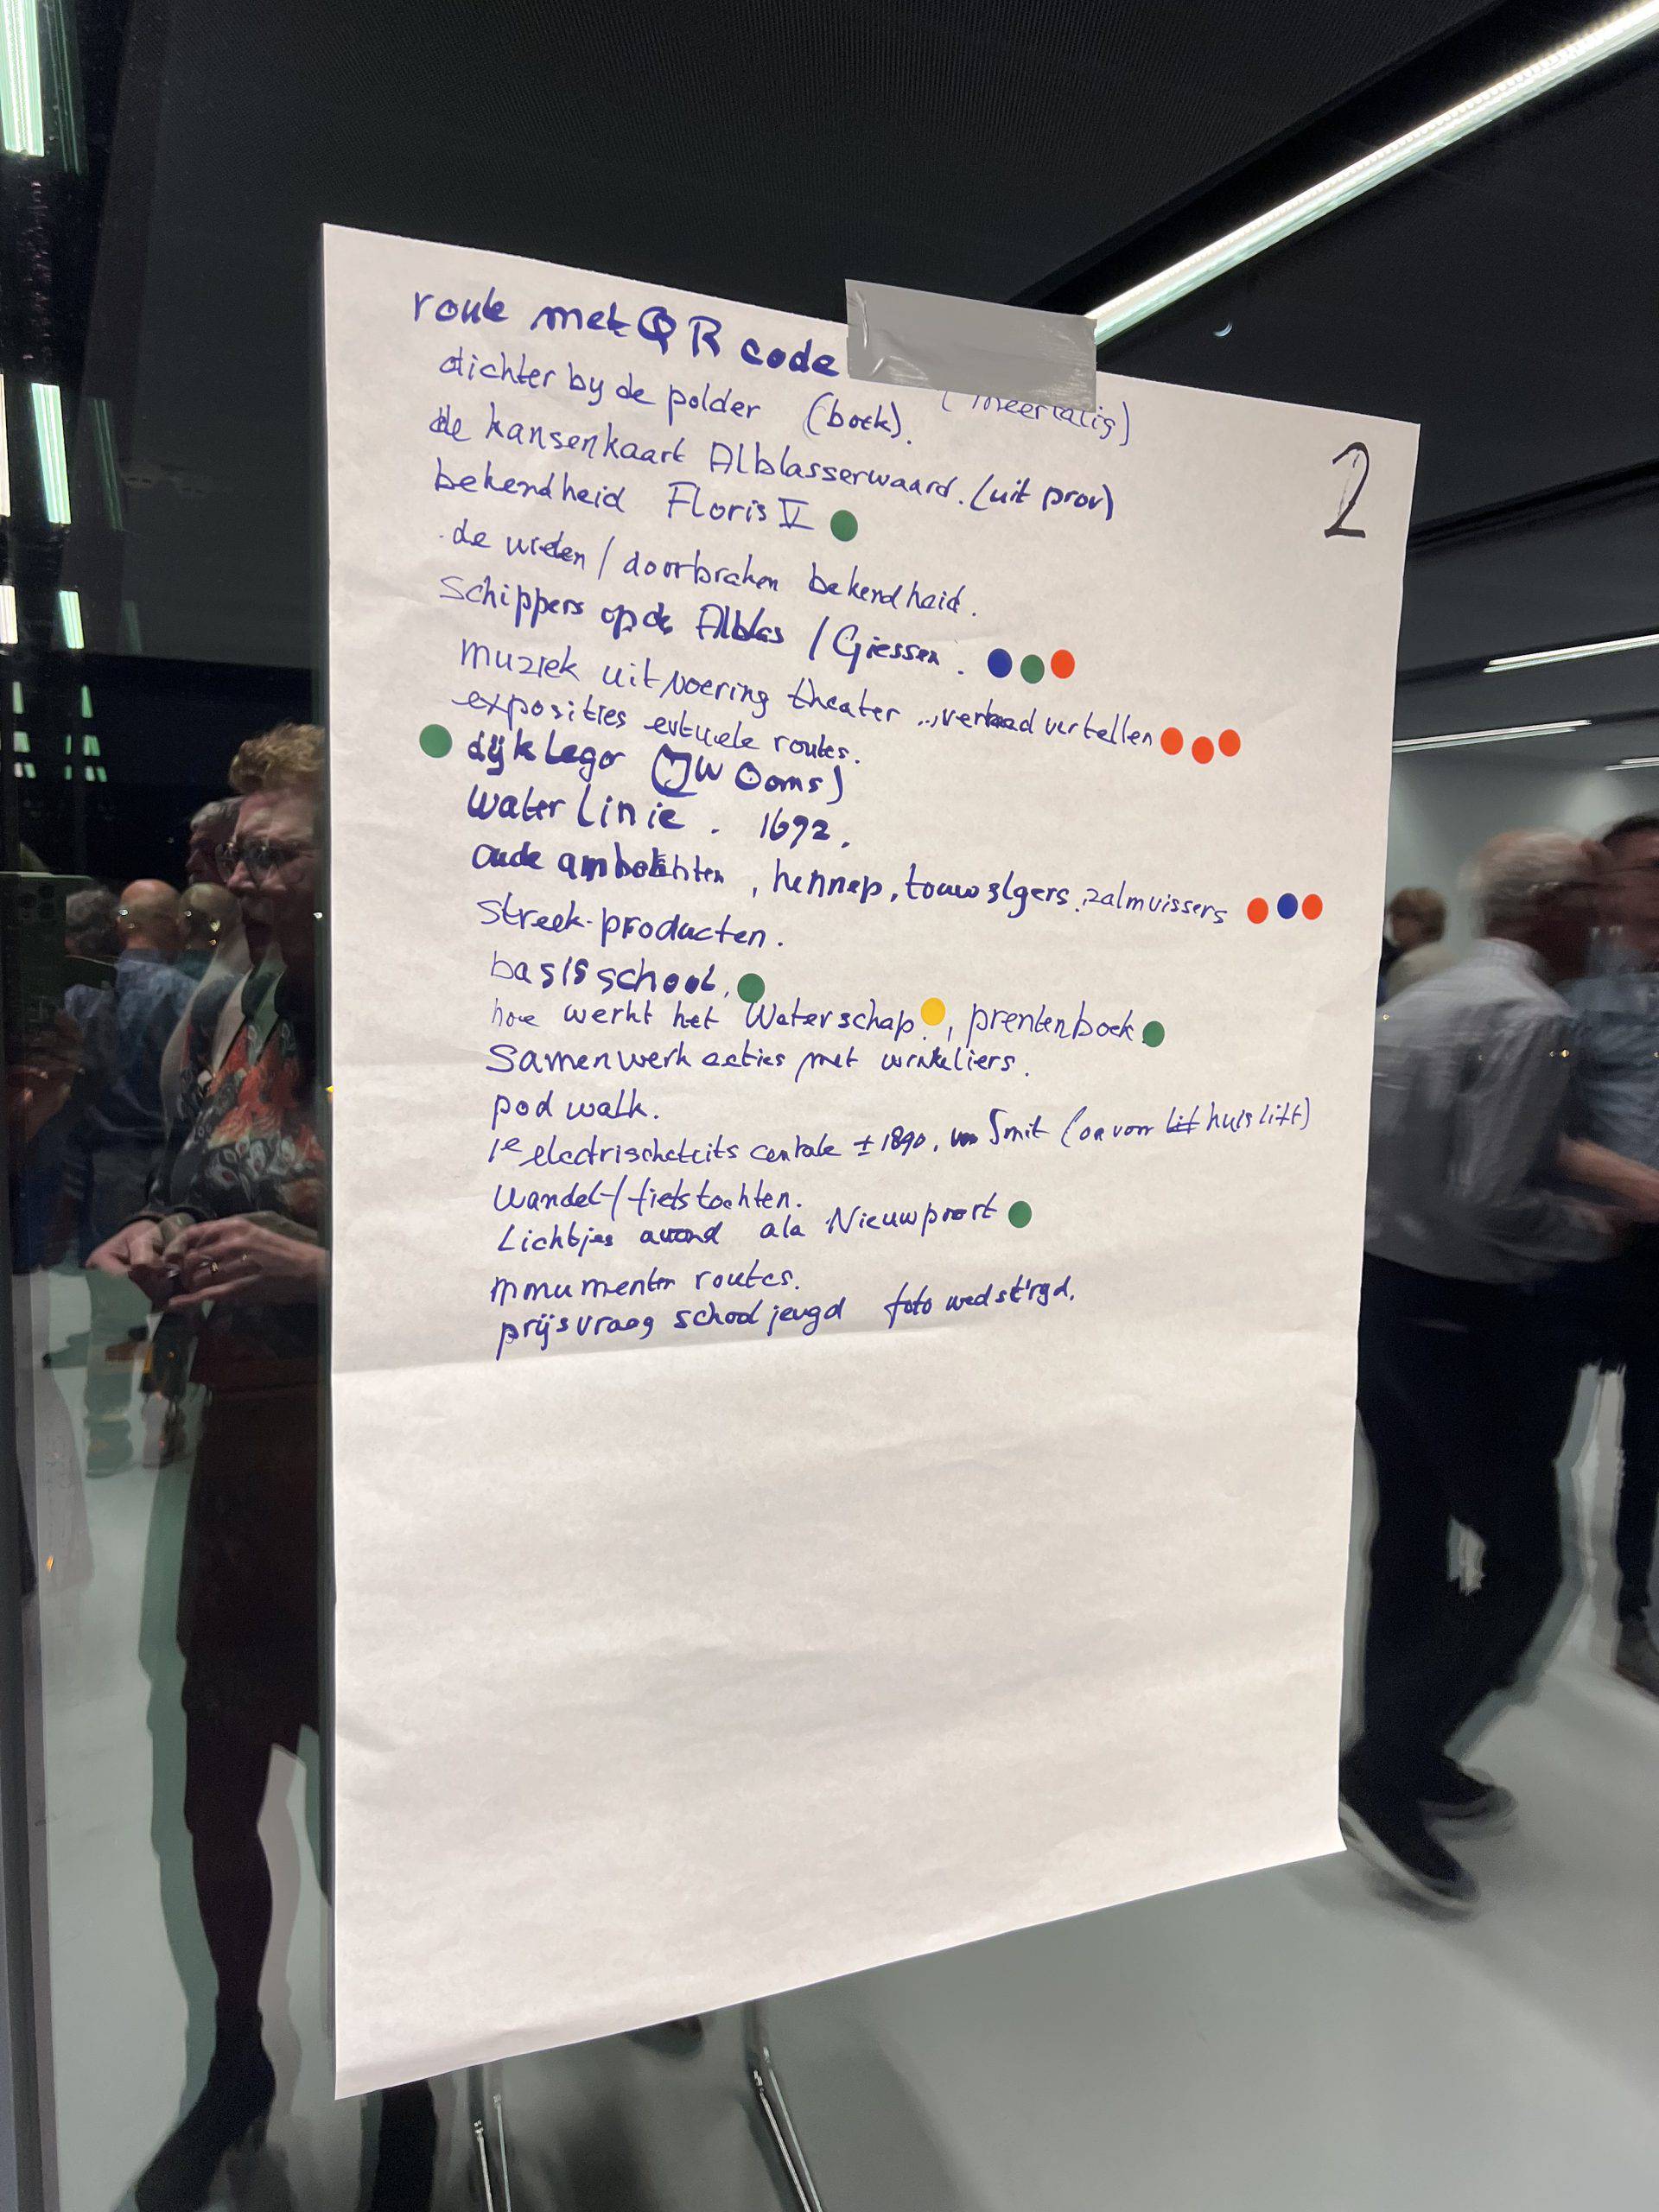 route met QR code
(meertalig)
dichter by de polder (boek).
2
de kansenkaart Alblasserwaard. (uit prov)
bekendheid Floris V
de wielen / doorbraken bekendheid.
Schippers op de Alblas / Giessen.
muziek uitvoering theater ... vertellen
exposities routes.
dijk Lego (JW Ooms)
Water Linie. 1672.
oude ambachten, hennep, touwslgers, zalmvissers
Streek-producten.
basisschool.
hoe werkt het Waterschap, prentenboek
Samenwerk acties met winkeliers.
pod walk.
1e centrale ± 1890, Smit (huis lift)
Wandel-/fietstochten.
Lichtjes avond ala Nieuwpoort
monumenten routes.
prijsvraag schooljeugd foto